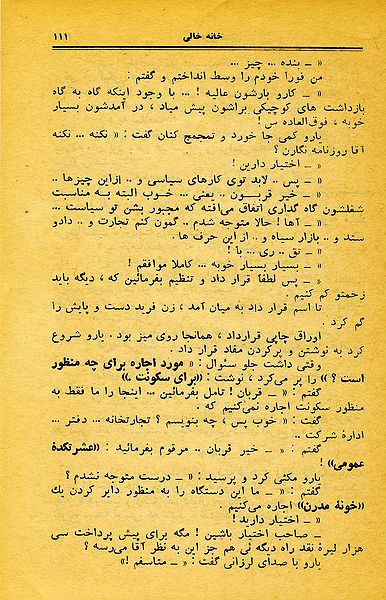 خانه خالی
۱۱۱
« ــ بنده ... چیز ...
من فوراً خودم را وسط انداختم و گفتم :
« ــ کارو بارشون عالیه ! ... با وجود اینکه گاه به گاه
بازداشت های کوچیکی براشون پیش میاد ، در آمدشون بسیار
خوبه ، فوق‌العاده س !
یارو کمی جا خورد و تمجمج کنان گفت : « نکنه ... نکنه
آقا روزنامه نگارن ؟
« ــ اختیار دارین !
« ــ پس .. لابد توی کارهای سیاسی و .. از این چیزها ..
« ــ خیر قربـــون .. یعنی ... خــوب البته بـه مناسبت
شغلشون گاه گداری اتفاق می‌افته که مجبور بشن تو سیاست ...
« ــ آها ! حالا متوجه شدم .. گمون کنم تجارت و .. دادو
ستد و .. بازار سیاه و .. از این حرف ها .
« ــ تق .. ری .. با !
« ــ بسیار بسیار خوبه ... کاملا موافقم !
« ــ پس لطفاً قرار داد و تنظیم بفرمائین که ، دیگه باید
زحمتو کم کنیم .
تا اسم قرار داد به میان آمد ، زن فربد دست و پایش را
گم کرد .
اوراق چاپی قرارداد ، همانجا روی میز بود . یارو شروع
کرد به نوشتن و پرکردن مفاد قرار داد .
وقتی داشت جلو سئوال : « مورد اجاره برای چه منظور
است ؟ » را پر می‌کرد ، نوشت : «(برای سکونت .)»
گفتم : « ــ قربان ! تامل بفرمائین ... اینجا را ما فقط به
منظور سکونت اجاره نمی‌کنیم که .
گفت : « خوب پس ، چه بنویسم ؟ تجارتخانه ... دفتر ...
ادارهٔ شرکت ..
گفتم : « ــ خیر قربان .. مرقوم بفرمائید : «عشرتکدهٔ
عمومی» !
یارو مکثی کرد و پرسید : « ــ درست متوجه نشدم ؟
گفتم : « ــ ما این دستگاه را به منظور دایر کردن یك
«خونهٔ مدرن» اجاره می‌کنیم .
« ــ اختیار دارید !
ــ صاحب اختیار باشین ! مگه برای پیش پرداخت سی
هزار لیرهٔ نقد راه دیگه ئی هم جز این به نظر آقا می‌رسه ؟
یارو با صدای لرزانی گفت : « ــ متاسفم !»